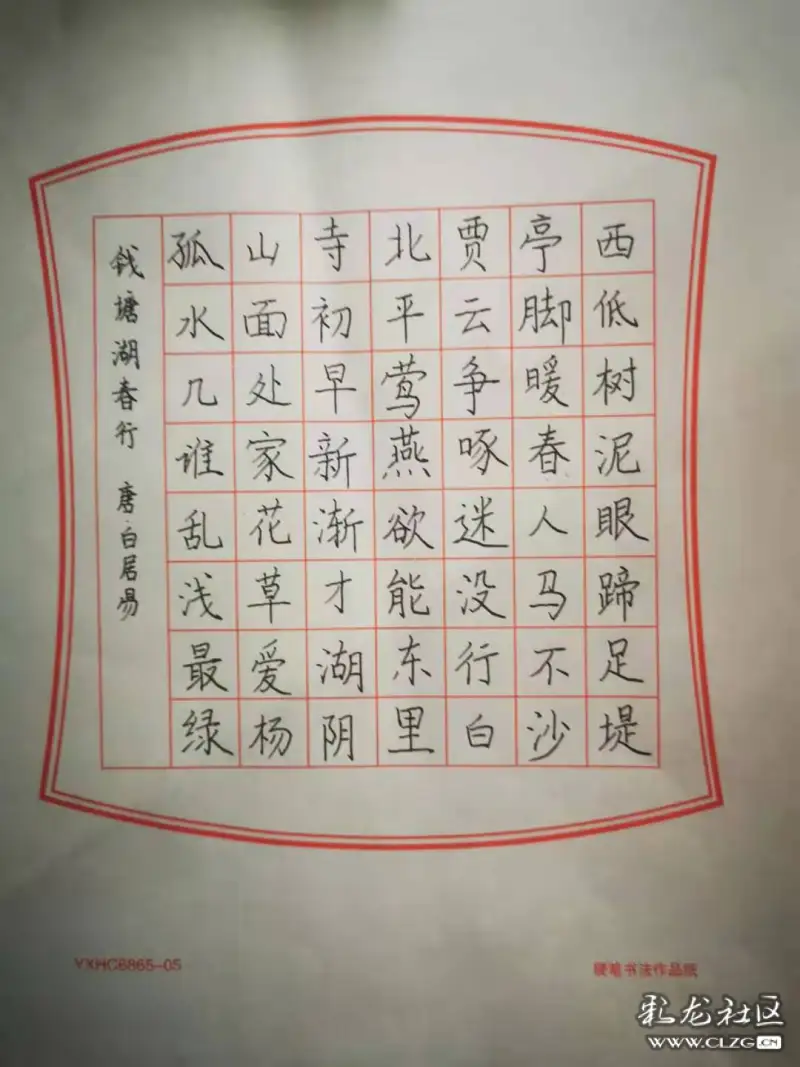 钱塘湖春行 唐·白居易
孤山寺北贾亭西
水面初平云脚低
几处早莺争暖树
谁家新燕啄春泥
乱花渐欲迷人眼
浅草才能没马蹄
最爱湖东行不足
绿杨阴里白沙堤
YXHC6865-05
硬笔书法作品纸
彩龙社区
WWW.CLZG.CN